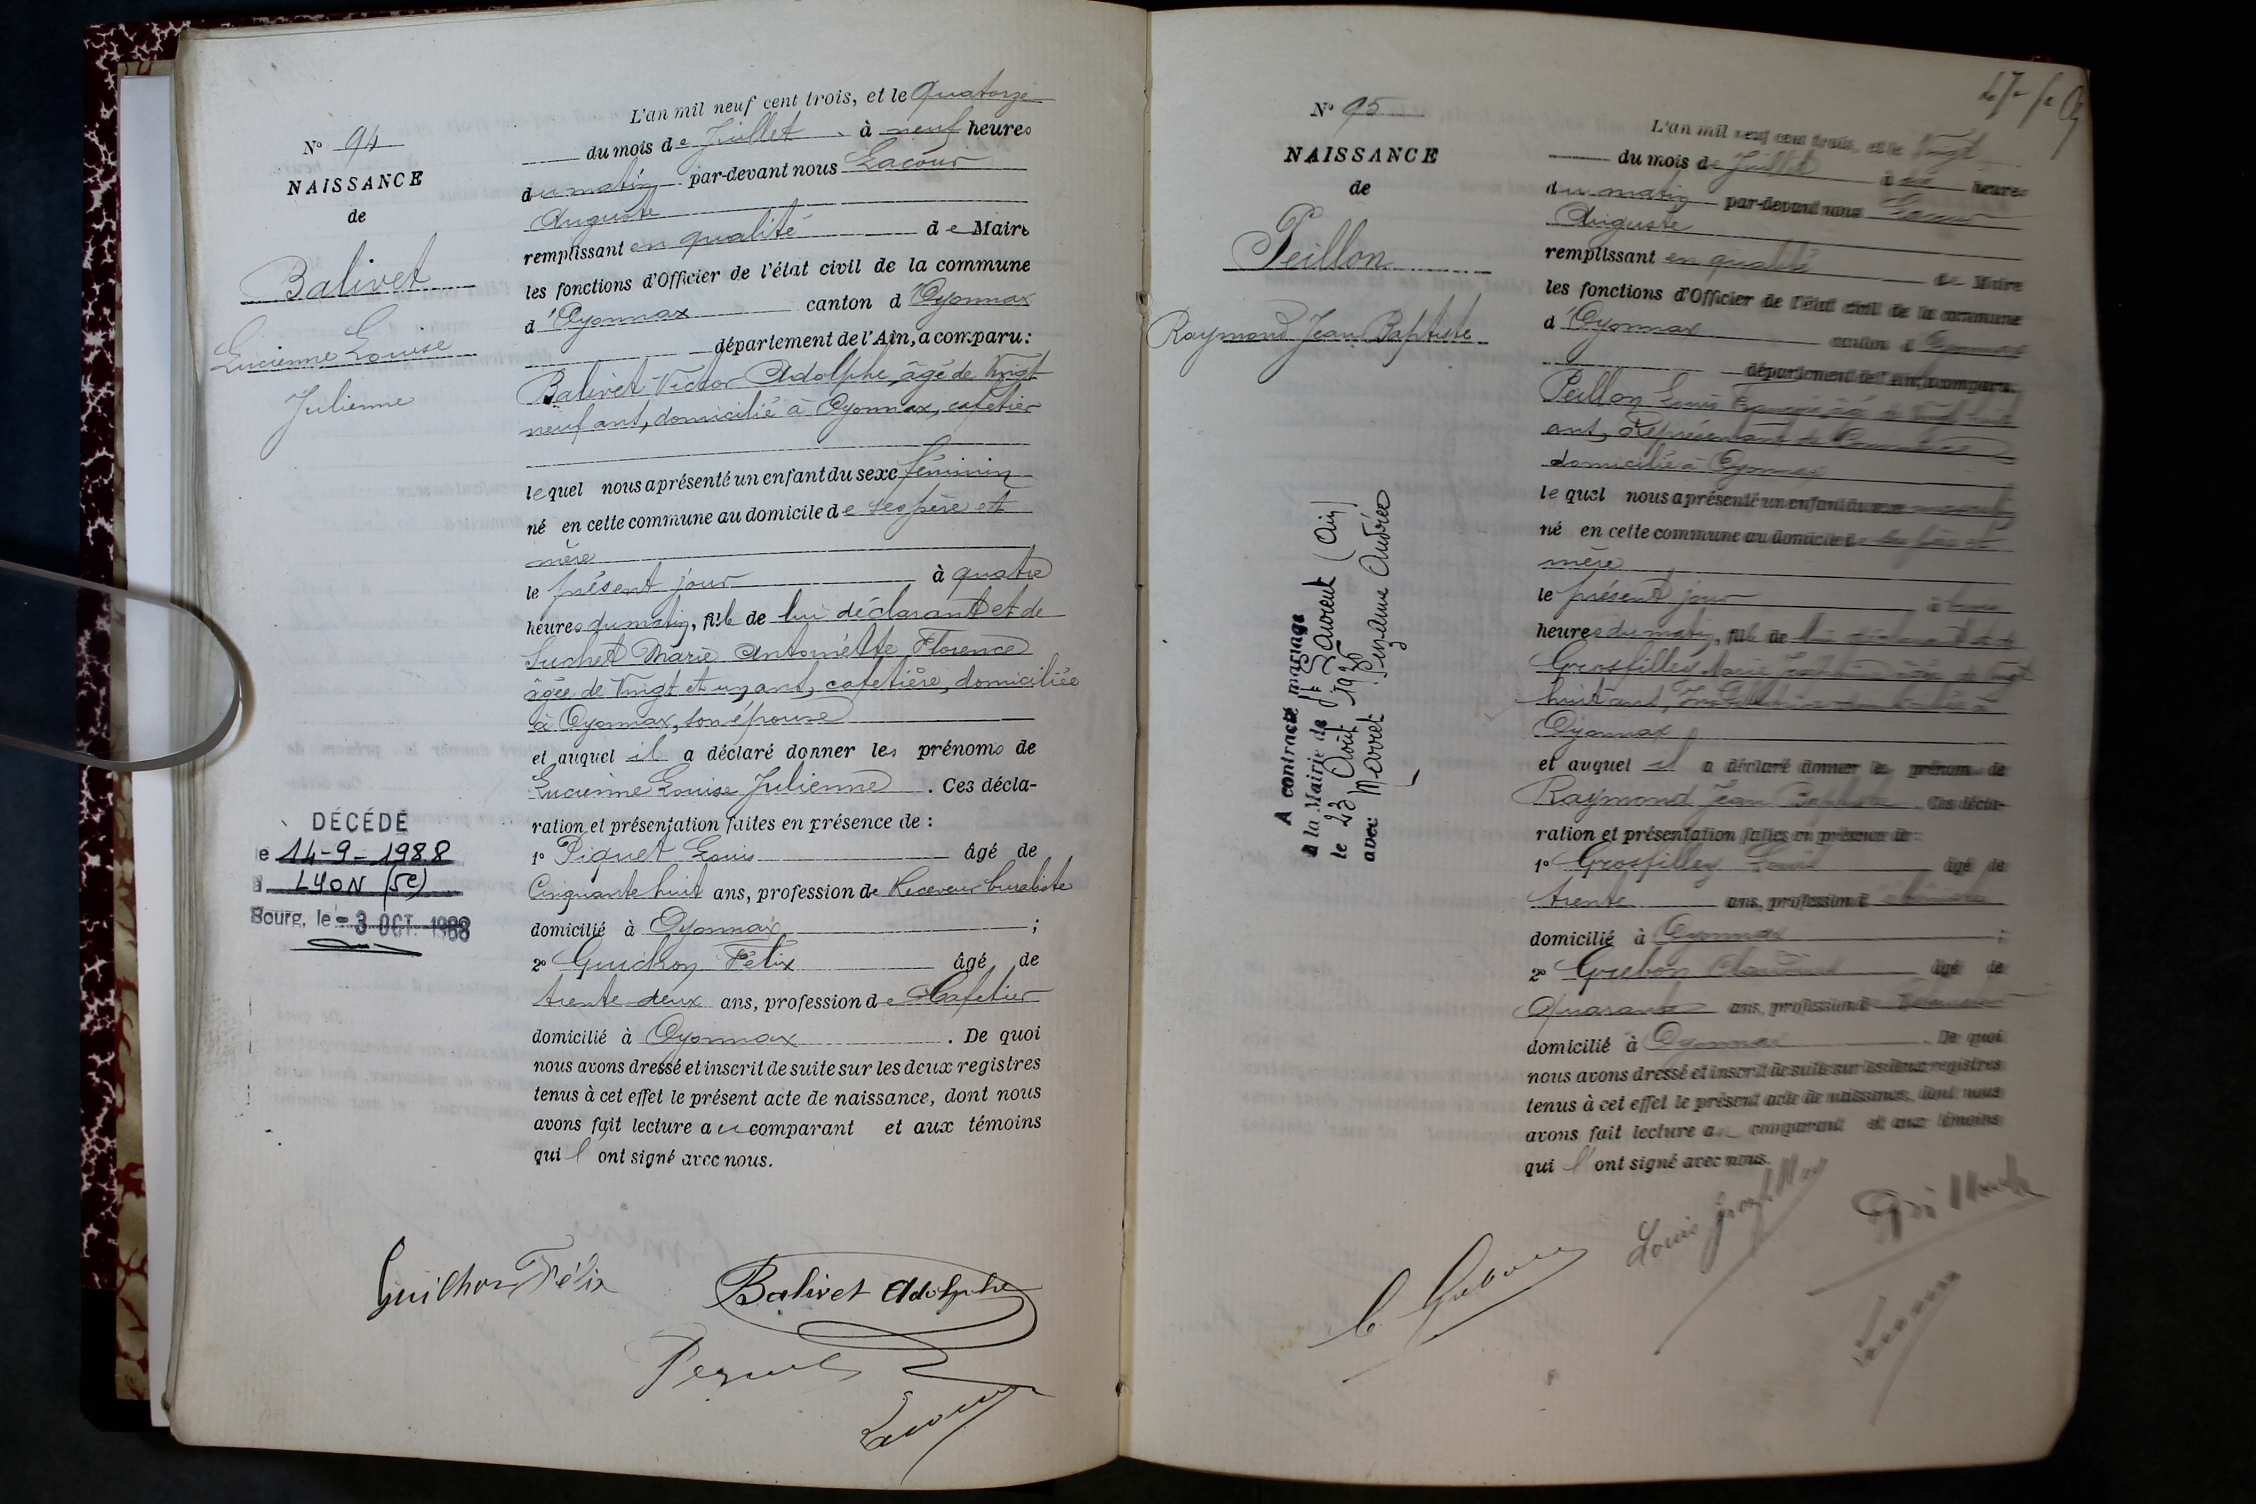 N° 94
NAISSANCE
de
Balivet
Lucienne Louise
Julienne
DÉCÉDÉ
le 14-9-1988
à LYON (5e)
Bourg, le - 3 OCT. 1988
L'an mil neuf cent trois, et le Quatorze
du mois de Juillet à neuf heures
du matin par-devant nous Lacour
Auguste
remplissant en qualité de Maire
les fonctions d'Officier de l'état civil de la commune
d'Oyonnax canton d'Oyonnax
département de l'Ain, a comparu :
Balivet Victor Adolphe, âgé de Vingt
neuf ans, domicilié à Oyonnax, cafetier
lequel nous a présenté un enfant du sexe féminin
né en cette commune au domicile de ses père et
mère
le présent jour à quatre
heures du matin, fille de lui déclarant et de
Suchet Marie Antoinette Florence
âgée de Vingt et un ans, cafetière, domiciliée
à Oyonnax, son épouse
et auquel il a déclaré donner les prénoms de
Lucienne Louise Julienne. Ces décla-
ration et présentation faites en présence de :
1° Piquet Louis âgé de
Cinquante huit ans, profession de Receveur buraliste
domicilié à Oyonnax ;
2° Guichon Félix âgé de
trente-deux ans, profession de Cafetier
domicilié à Oyonnax. De quoi
nous avons dressé et inscrit de suite sur les deux registres
tenus à cet effet le présent acte de naissance, dont nous
avons fait lecture au comparant et aux témoins
qui l'ont signé avec nous.
Guichon Félix
Balivet Adolphe
Lacour
N° 95
NAISSANCE
de
Peillon
Raymond Jean Baptiste
A contracté mariage
à la Mairie de St Laurent (Ain)
le 23 Août 1926
avec Suzanne Andrée
L'an mil neuf cent trois, et le Vingt
du mois de Juillet à heures
du matin par-devant nous Lacour
Auguste
remplissant en qualité de Maire
les fonctions d'Officier de l'état civil de la commune
d'Oyonnax canton d'Oyonnax
département de l'Ain, a comparu
Peillon Louis François, âgé de Vingt huit
ans, Représentant de Commerce
domicilié à Oyonnax
lequel nous a présenté un enfant du sexe masculin
né en cette commune au domicile de ses père et
mère
le présent jour à
heures du matin, fils de lui déclarant et de
Grosfilley Marie âgée de Vingt
huit ans, domiciliée à
Oyonnax
et auquel il a déclaré donner les prénoms de
Raymond Jean Baptiste. Ces décla-
ration et présentation faites en présence de :
1° Grosfilley Louis âgé de
trente ans, profession d'
domicilié à Oyonnax ;
2° Grebon âgé de
Quarante ans, profession de
domicilié à Oyonnax. De quoi
nous avons dressé et inscrit de suite sur les deux registres
tenus à cet effet le présent acte de naissance, dont nous
avons fait lecture au comparant et aux témoins
qui l'ont signé avec nous.
Louis Grosfilley